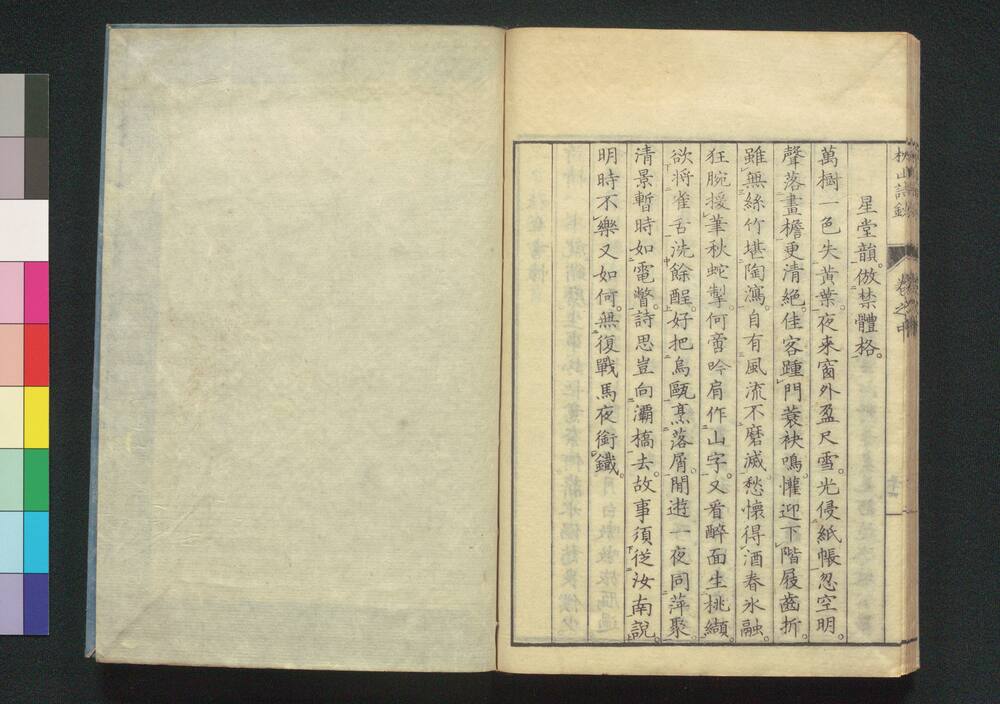 星堂韻。倣禁體格。
萬樹一色失黃葉。夜來窗外盈尺雪。光侵紙帳忽空明。
聲落畫檐更清絕。佳客踵門蓑袂鳴。懽迎下階屐齒折。
雖無絲竹堪陶瀉。自有風流不磨滅。愁懷得酒春氷融。
狂腕援筆秋蛇掣。何啻吟肩作山字。又看醉面生桃纈。
欲將雀舌洗餘酲。好把烏甌烹落屑。閒遊一夜同萍聚。
清景暫時如電瞥。詩思豈向灞橋去。故事須從汝南說。
明時不樂又如何。無復戰馬夜銜鐵。
山詩鈔
卷之中